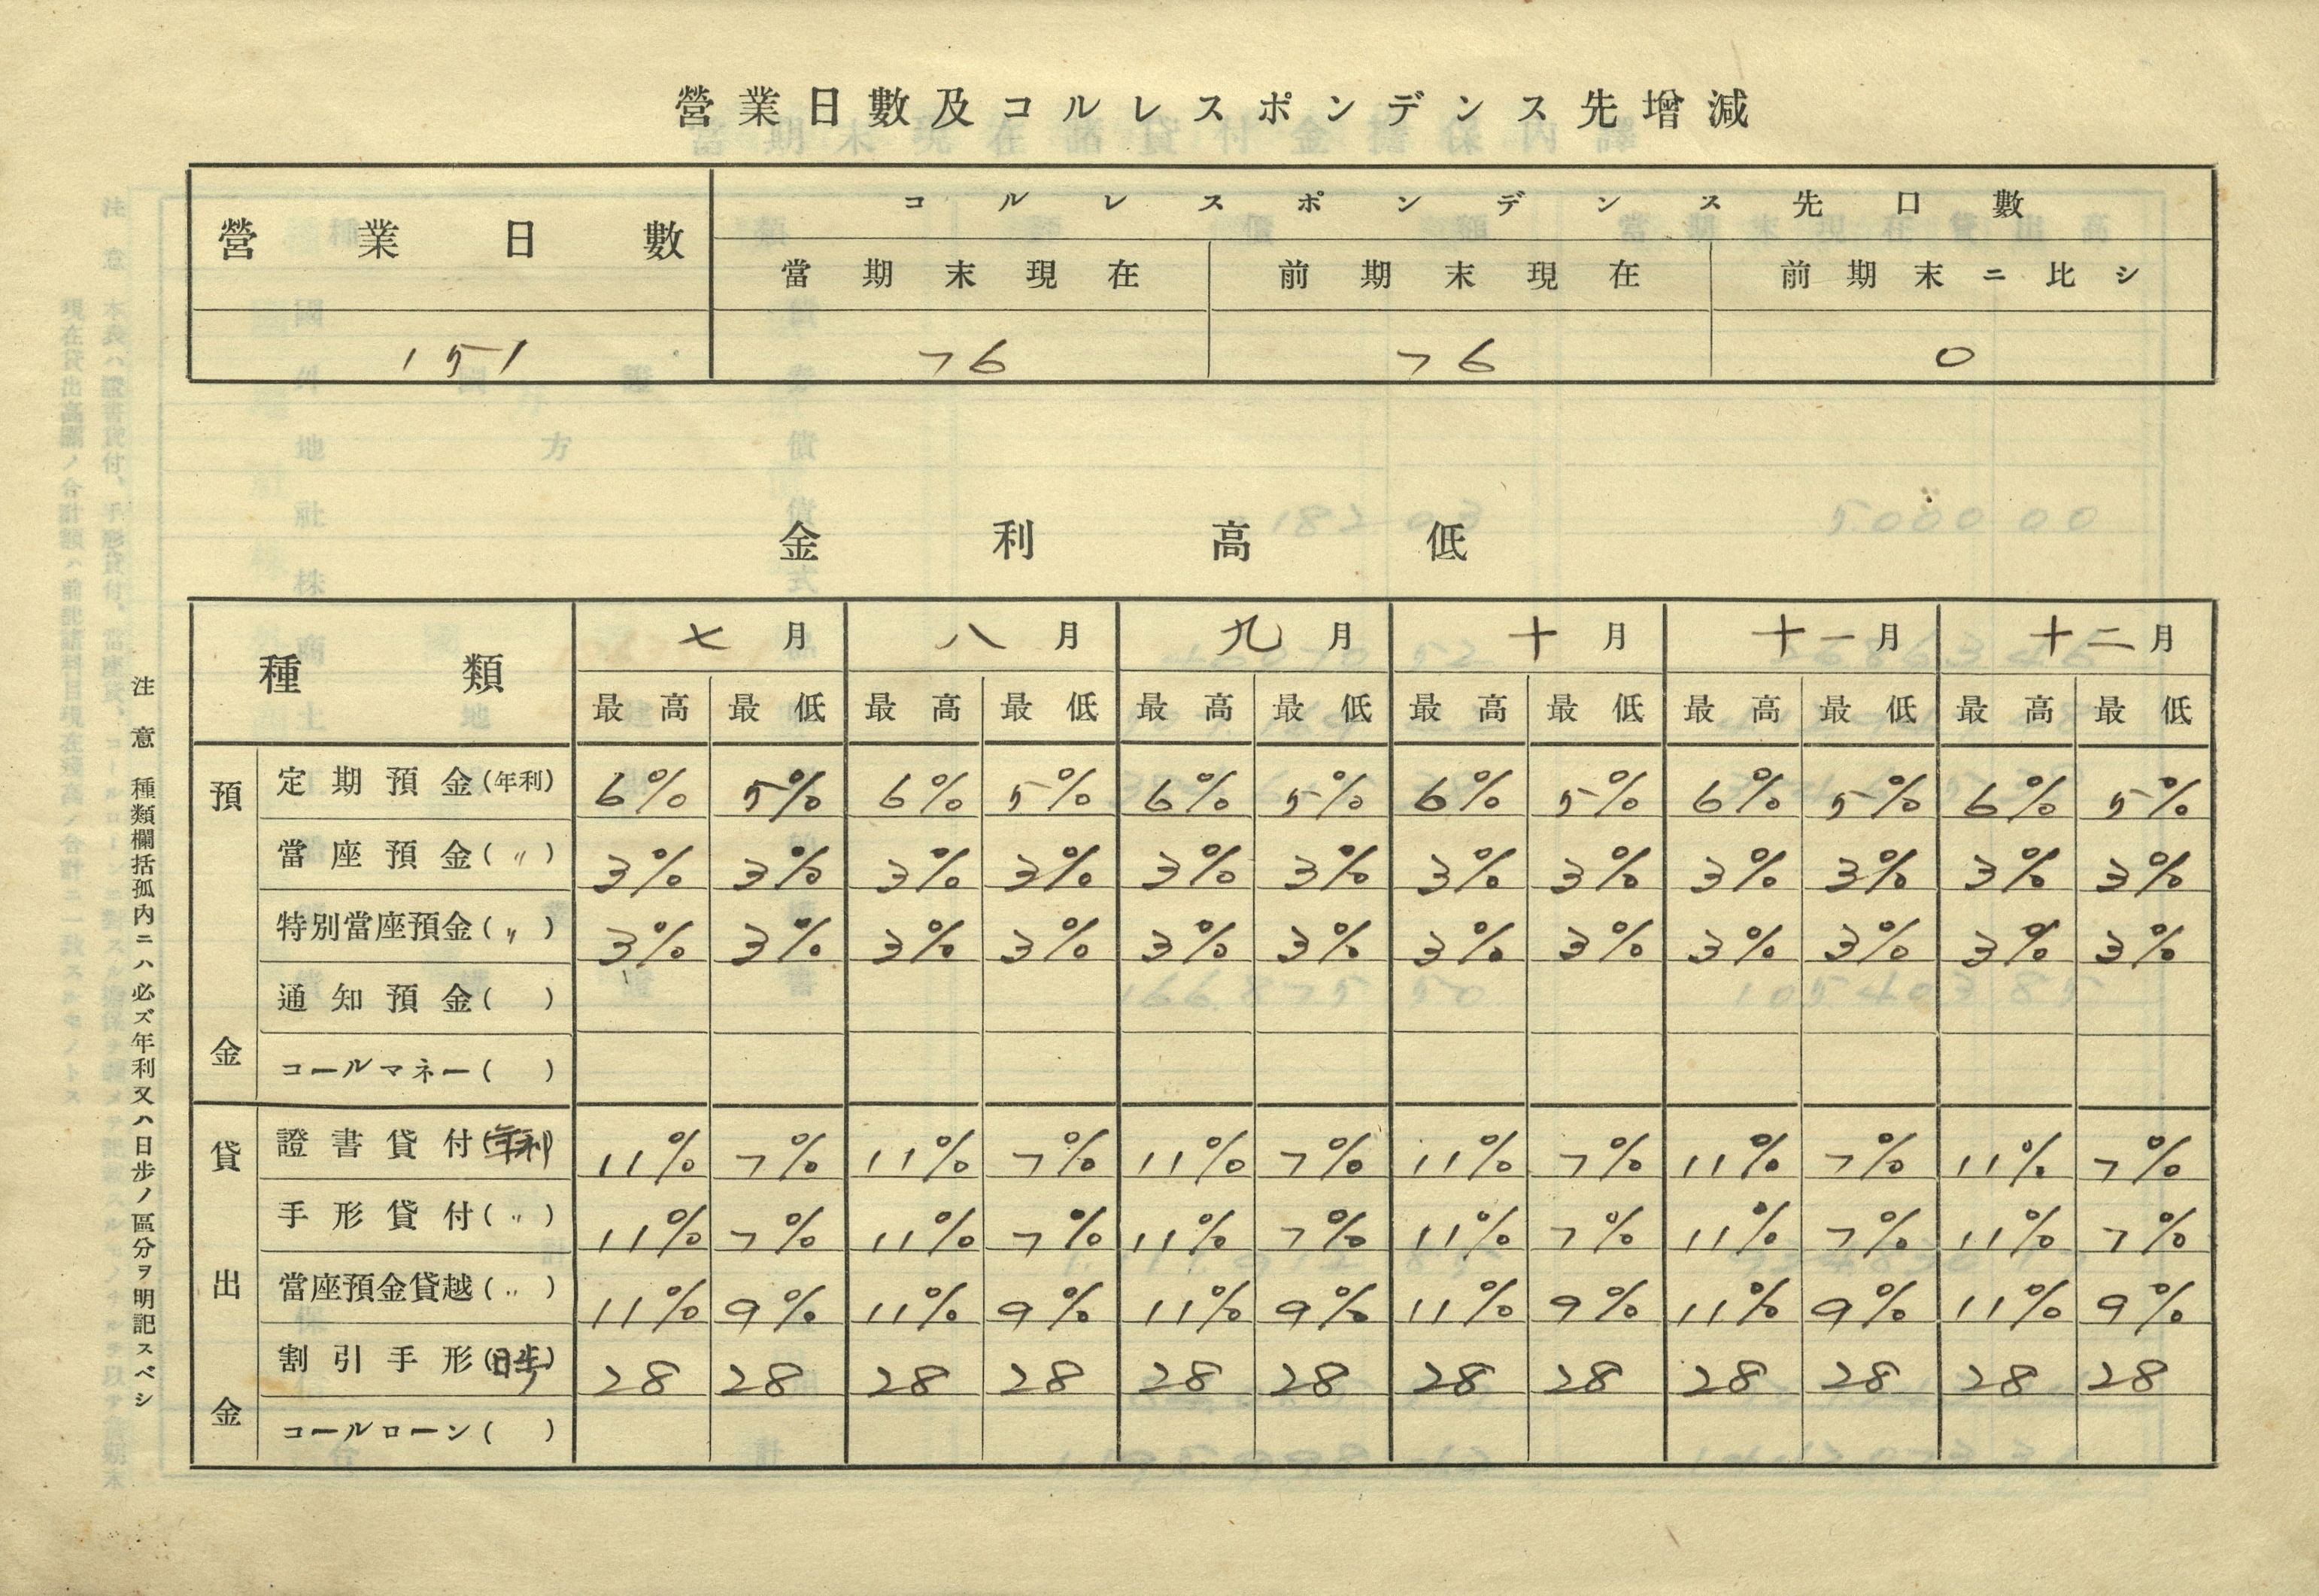 營業日數及コルレスポンデンス先增減
營業日數 コルレスポンデンス先口數
當期末現在 前期末現在 前期末ニ比シ
151 76 76 0
金利高低
種類 七月 八月 九月 十月 十一月 十二月
最高 最低 最高 最低 最高 最低 最高 最低 最高 最低 最高 最低
預金
定期預金(年利) 6% 5% 6% 5% 6% 5% 6% 5% 6% 5% 6% 5%
當座預金(〃) 3% 3% 3% 3% 3% 3% 3% 3% 3% 3% 3% 3%
特別當座預金(〃) 3% 3% 3% 3% 3% 3% 3% 3% 3% 3% 3% 3%
通知預金( )
コールマネー( )
貸出金
證書貸付(年利) 11% 7% 11% 7% 11% 7% 11% 7% 11% 7% 11% 7%
手形貸付(〃) 11% 7% 11% 7% 11% 7% 11% 7% 11% 7% 11% 7%
當座預金貸越(〃) 11% 9% 11% 9% 11% 9% 11% 9% 11% 9% 11% 9%
割引手形(日歩) 28 28 28 28 28 28 28 28 28 28 28 28
コールローン( )
注意 種類欄括孤內ニハ必ズ年利又ハ日步ノ區分ヲ明記スベシ